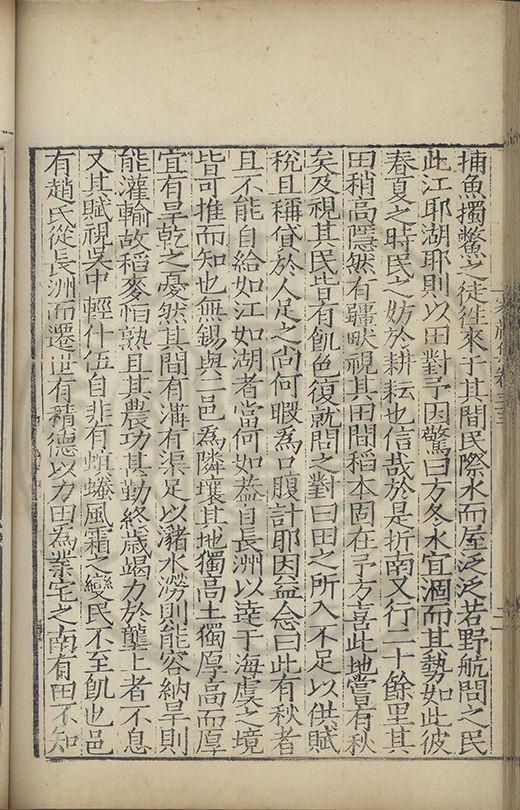 捕魚獨鱉之徒徃來于其間民際水而屋泛泛若野航問之民
此江耶湖耶則以田對予因驚曰方冬水宜涸而其勢如此彼
春夏之時民之妨於耕耘也信哉於是折南又行二十餘里其
田稍高隱然有疆畎視其田間稻本固在予方喜此地嘗有秋
矣及視其民皆有飢色復就問之對曰田之所入不足以供賦
稅且稱貸於人足之尚何暇爲口腹計耶因益念曰此有秋者
且不能自給如江如湖者當何如葢自長洲以達于海虞之境
皆可推而知也無錫與二邑爲隣壤其地獨高土獨厚高而厚
宜有旱乾之憂然其間有溝有渠足以瀦水澇則能容納旱則
能灌輸故稻麥恒熟且其農功甚勤終歲竭力於壟上者不息
又其賦視吳中輕什伍自非有蝗蜷風霜之變民不至飢也邑
有趙氏從長洲而遷世有積德以力田爲業宅之南有田不知